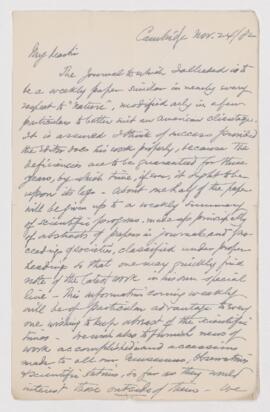 Cambridge Nov. 24/82
My dear Sir
The Journal to which I alluded is to
be a weekly paper similar in nearly every
respect to "Nature", modified only in a few
particulars to better suit an American clientage.
It is assured I think of success provided
the Editor does his work properly, because the
deficiencies are to be guaranteed for three
years, by which time, if ever, it ought to be
upon its legs - About one half of the paper
will be given up to a weekly summary
of scientific progress, made up principally
of abstracts of papers in journals and pro-
ceedings of societies, classified under proper
headings so that one may quickly find
note of the latest work in his own special
line - This information coming weekly
will be of particular advantage to every
one wishing to keep abreast of the scientific
times - We wish also to furnish news of
work accomplished and accessions
made to all our museums, observatories
& scientific stations, so far as they would
interest those outside of them - We